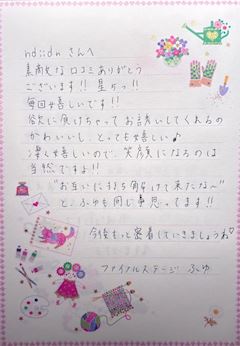 ndiidnさんへ
素敵な口コミありがとう
ございます!! 星5っ!!
毎回嬉しいです!!
欲に負けちゃってお誘いしてくれるの
かわいいし、とっても嬉しい♪
凄く嬉しいので、笑顔になるのは
当然ですよ!!
"お互いに打ち解けて来たな〜"
と、ふゆも同じ事思ってます!!
今後もっと密着していきましょうね♡
ファイナルステージ ふゆ